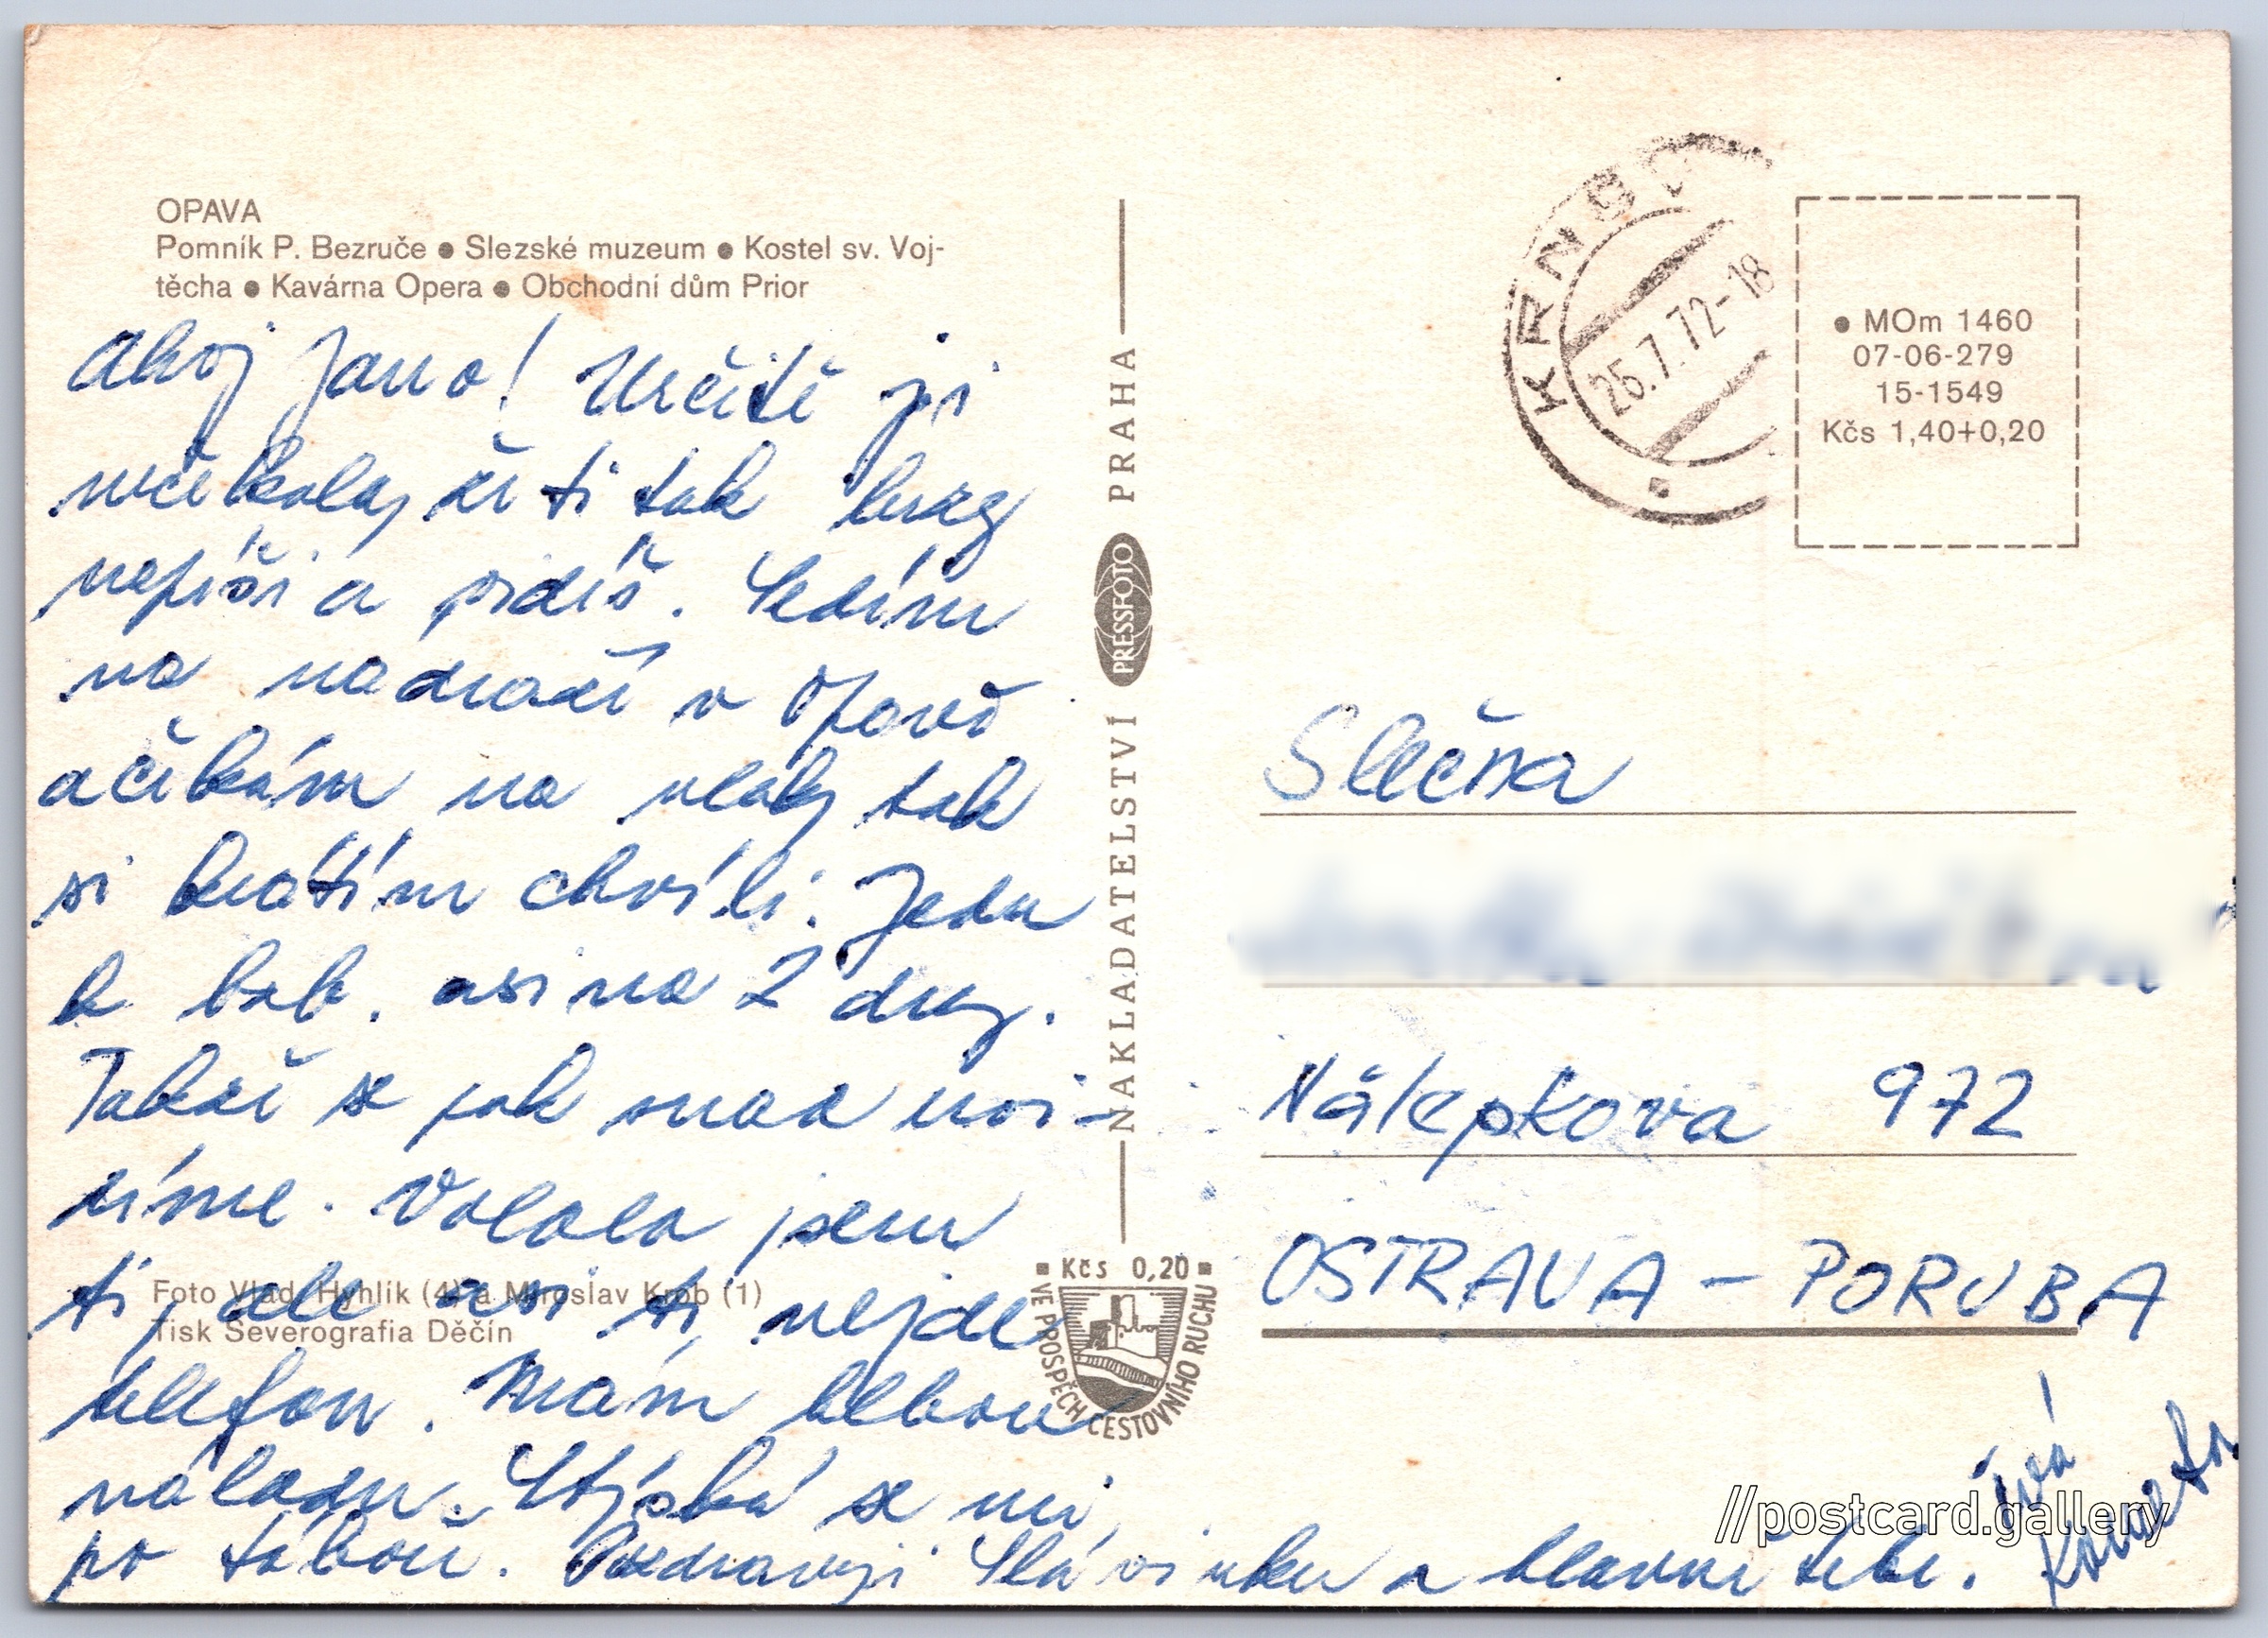 OPAVA
Pomník P. Bezruče ● Slezské muzeum ● Kostel sv. Voj-
těcha ● Kavárna Opera ● Obchodní dům Prior
Ahoj Jano! Určitě jsi
nečekala, že ti tak brzy
napíši a vidíš. Sedím
na nádraží v Opavě
a čekám na vlak, tak
si krátím chvíli. Jedu
k bab. asi na 2 dny.
Takže se pak snad uvi-
díme. Volala jsem
ti, ale asi ti nejde
telefon. Mám blbou
náladu. Stýská se mi
po táboře. Pozdravuji Slávinku a hlavně tebe.
Tvá
Foto Vlad. Hyhlík (4) a Miroslav Krob (1)
Tisk Severografia Děčín
NAKLADATELSTVÍ PRESSFOTO PRAHA
Kčs 0,20
VE PROSPĚCH CESTOVNÍHO RUCHU
KRNOV
25.7.72-18
● MOm 1460
07-06-279
15-1549
Kčs 1,40+0,20
Slečna
Nálepkova 972
OSTRAVA - PORUBA
//postcard.gallery